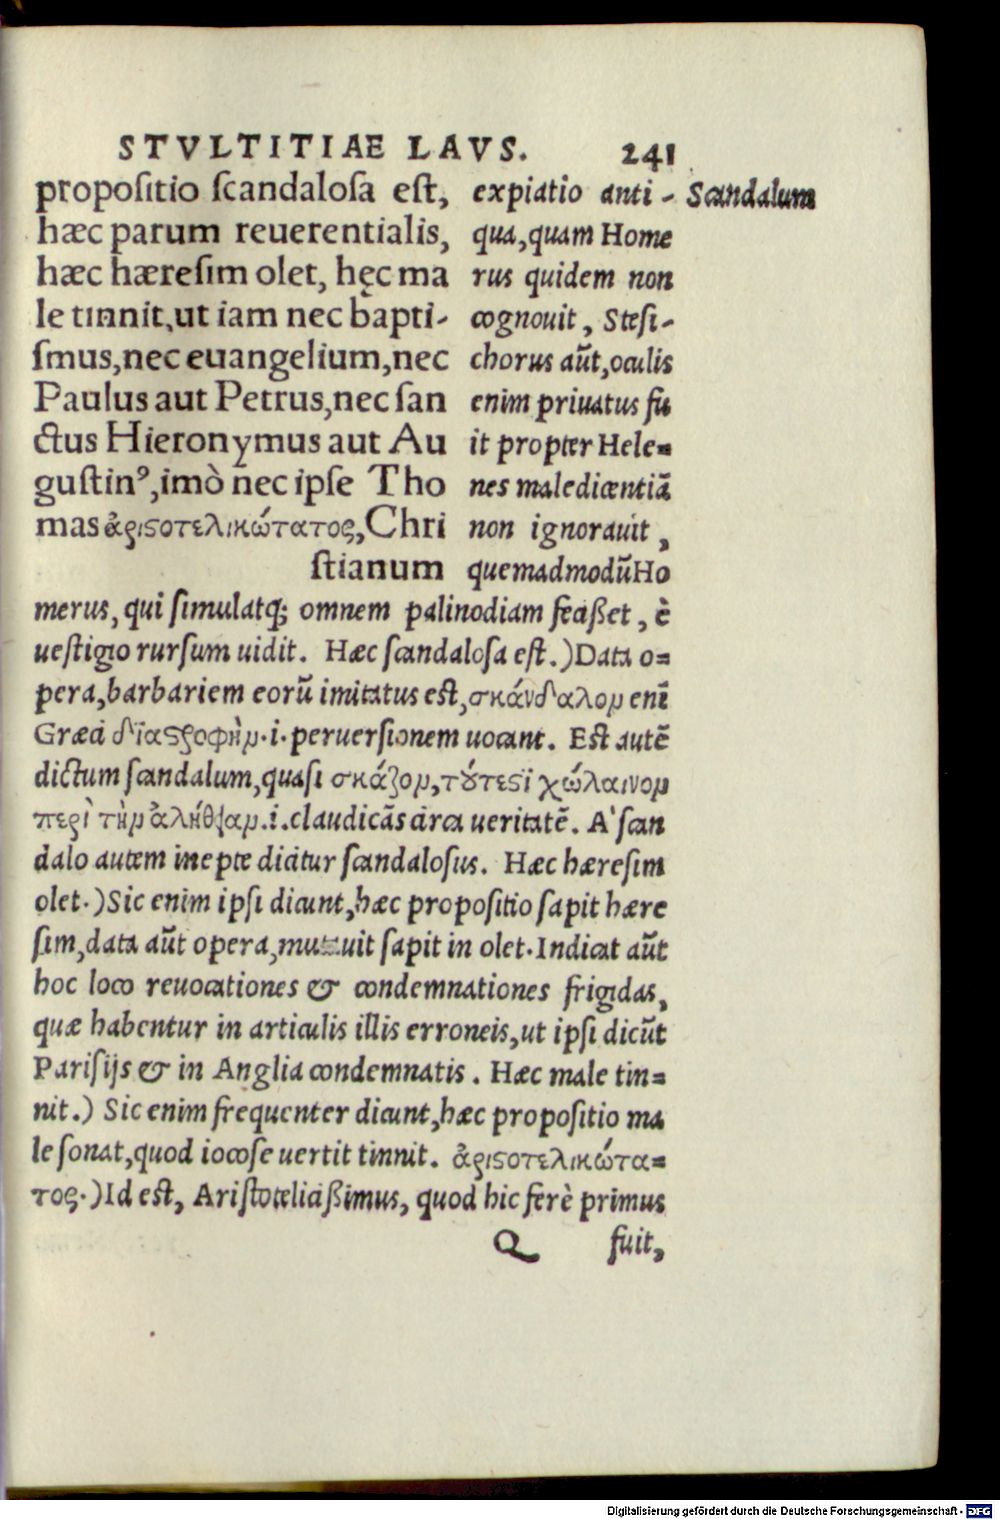 STVLTITIAE LAVS. 241
propositio scandalosa est,
hæc parum reuerentialis,
hæc hæresim olet, hęc ma
le tinnit, ut iam nec bapti-
smus, nec euangelium, nec
Paulus aut Petrus, nec san
ctus Hieronymus aut Au
gustinꝰ, imò nec ipse Tho
mas ἀριστοτελικώτατος, Chri
stianum
expiatio anti-
qua, quam Home
rus quidem non
cognouit, Stesi-
chorus aũt, oculis
enim priuatus fu
it propter Hele=
nes maledicentiã
non ignorauit,
quemadmodũ Ho
Scandalum
merus, qui simulatq; omnem palinodiam fecißet, è
uestigio rursum uidit. Hæc scandalosa est.) Data o=
pera, barbariem eorũ imitatus est, σκάνδαλον enĩ
Græci διαστροφὴν .i. peruersionem uocant. Est autẽ
dictum scandalum, quasi σκάζον, τούτεστι χώλαινον
περὶ τὴν ἀλήθειαν .i. claudicãs circa ueritatẽ. A' scan
dalo autem inepte dicitur scandalosus. Hæc hæresim
olet.) Sic enim ipsi dicunt, hæc propositio sapit hære
sim, data aũt opera, mutauit sapit in olet. Indicat aũt
hoc loco reuocationes & condemnationes frigidas,
quæ habentur in articulis illis erroneis, ut ipsi dicũt
Parisijs & in Anglia condemnatis. Hæc male tin=
nit.) Sic enim frequenter dicunt, hæc propositio ma
le sonat, quod iocose uertit tinnit. ἀριστοτελικώτα=
τος.) Id est, Aristoteliciißimus, quod hic ferè primus
Q fuit,
Digitalisierung gefördert durch die Deutsche Forschungsgemeinschaft - DFG